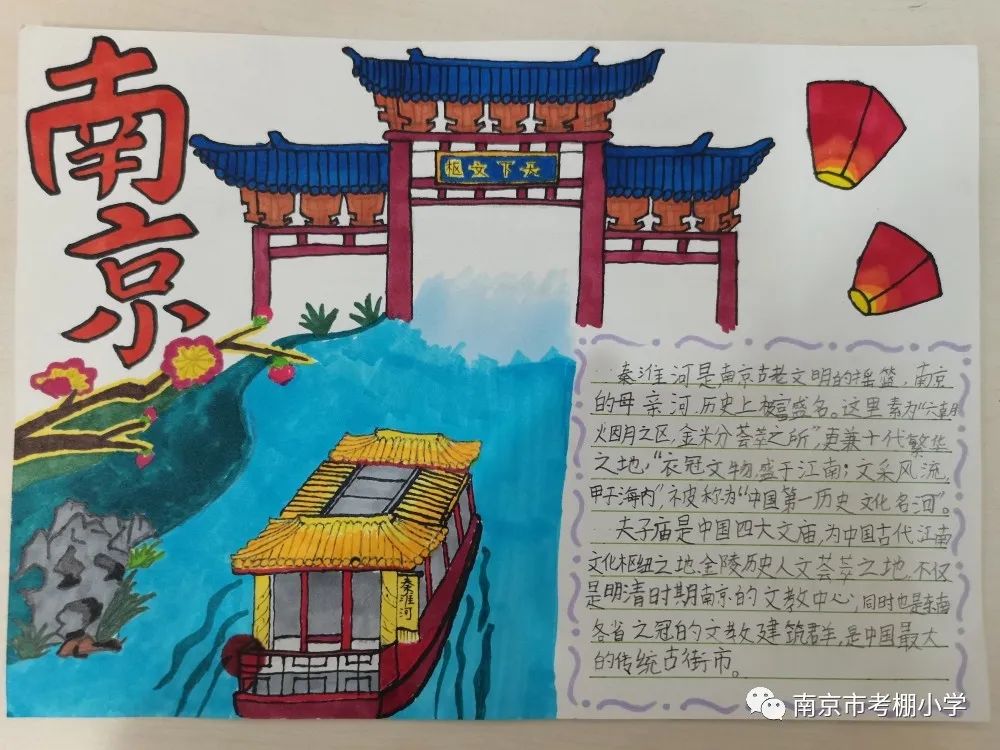 南京
天下文枢
秦淮河是南京古老文明的摇篮，南京
的母亲河，历史上极富盛名。这里素为“六朝
烟月之区，金粉荟萃之所”，更兼十代繁华
之地，“衣冠文物，盛于江南；文采风流，
甲于海内”被称为“中国第一历史文化名河”。
夫子庙是中国四大文庙，为中国古代江南
文化枢纽之地、金陵历史人文荟萃之地，不仅
是明清时期南京的文教中心，同时也是东南
各省之冠的文教建筑群，是中国最大
的传统古街市。
秦淮河
南京市考棚小学